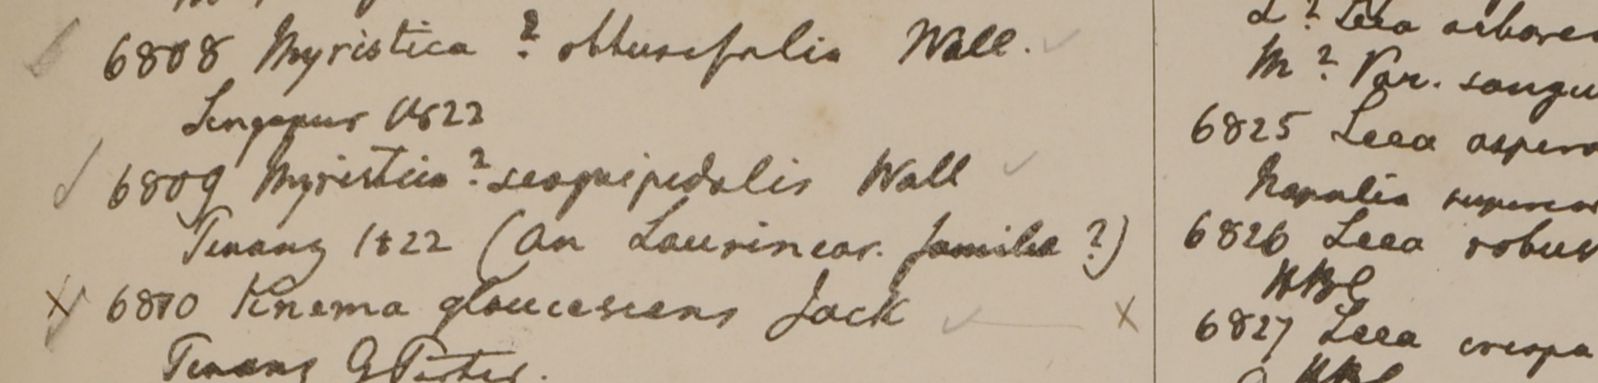 6808 Myristica ? obtusifolia Wall.
Singapur 1822
6809 Myristica ? sesquipedalis Wall
Penang 1822 (an Laurinear. familia ?)
6810 Knema glaucescens Jack
Penang G Porter.
L ? Leea arbore
M ? Var. sangu
6825 Leea aspera
Napalia
6826 Leea robus
HBC
6827 Leea crispa
HBC